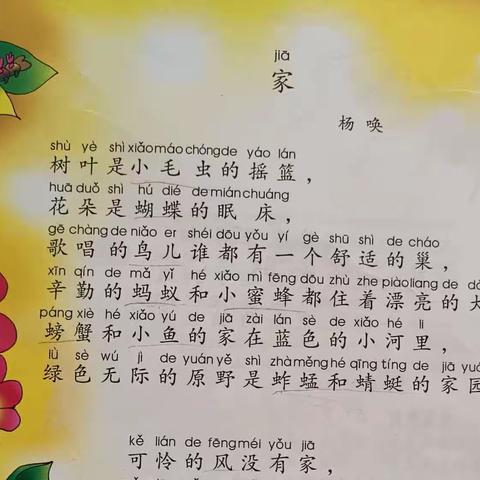 jiā
家
杨 唤
shù yè shì xiǎo máo chóng de yáo lán
树 叶 是 小 毛 虫 的 摇 篮 ，
huā duǒ shì hú dié de mián chuáng
花 朵 是 蝴 蝶 的 眠 床 ，
gē chàng de niǎo er shéi dōu yǒu yí gè shū shì de cháo
歌 唱 的 鸟 儿 谁 都 有 一 个 舒 适 的 巢 ，
xīn qín de mǎ yǐ hé xiǎo mì fēng dōu zhù zhe piào liang de
辛 勤 的 蚂 蚁 和 小 蜜 蜂 都 住 着 漂 亮 的
páng xiè hé xiǎo yú de jiā zài lán sè de xiǎo hé li
螃 蟹 和 小 鱼 的 家 在 蓝 色 的 小 河 里 ，
lǜ sè wú jì de yuán yě shì zhà měng hé qīng tíng de jiā
绿 色 无 际 的 原 野 是 蚱 蜢 和 蜻 蜓 的 家 园
kě lián de fēng méi yǒu jiā
可 怜 的 风 没 有 家 ，